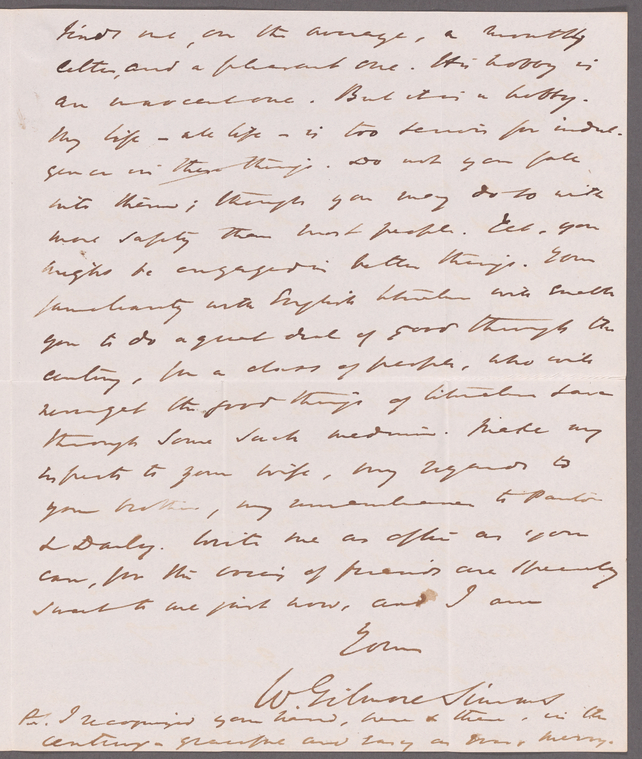 finds me, on the average, a monthly
letter, and a pleasant one. His hobby is
an innocent one. But it is a hobby.
My life - all life - is too serious for indul-
gence in these things. Do not you fall
into them; though you may do so with
more safety than most people. Yet, you
might be engaged in better things. Your
familiarity with English literature will enable
you to do a great deal of good through the
century, for a class of people, who will
never get the good things of literature save
through some such medium. Make my
respects to your wife, my regards to
your brother, my remembrance to Panton
& Darley. Write me as often as you
can, for the voices of friends are specially
sweet to me just now, and I am
Yours
W. Gilmore Simms
Ps. I recognized your hand, here & there, in the
century - graceful and easy as ever, merry.